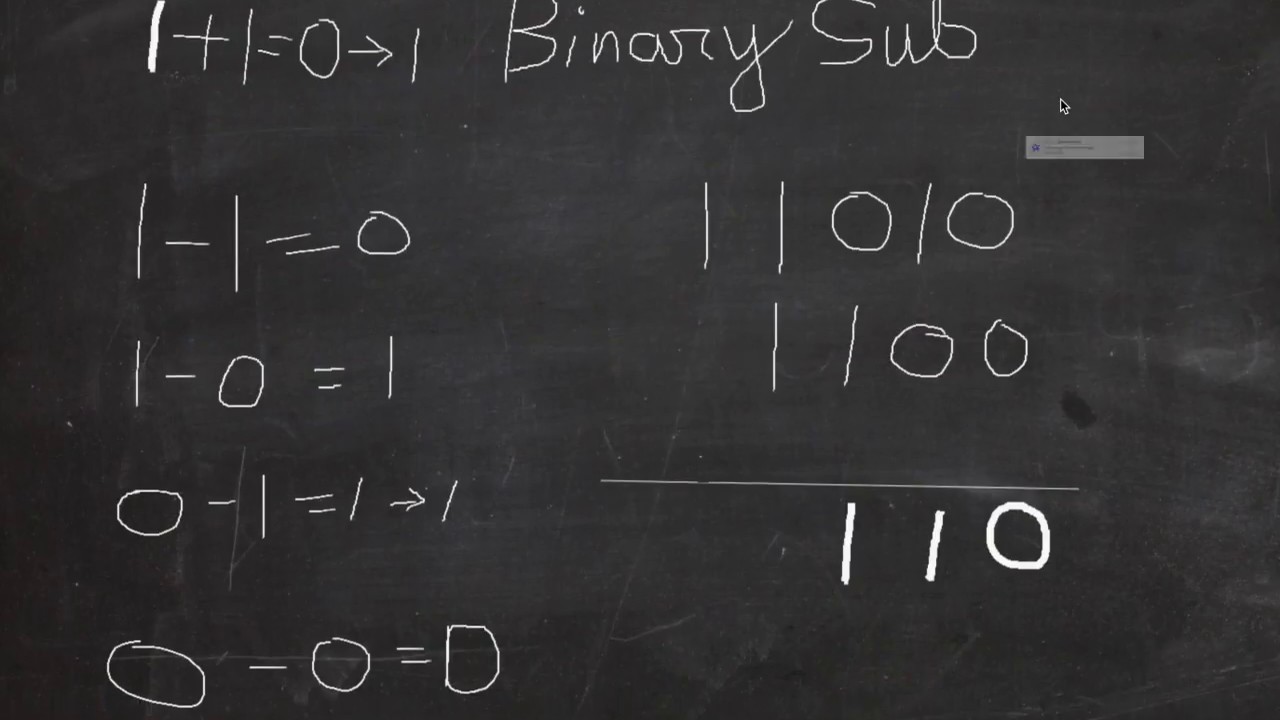 1+1=0→1 Binary Sub
1-1=0 11010
1-0=1 1100
0-1=1→1 110
0-0=0